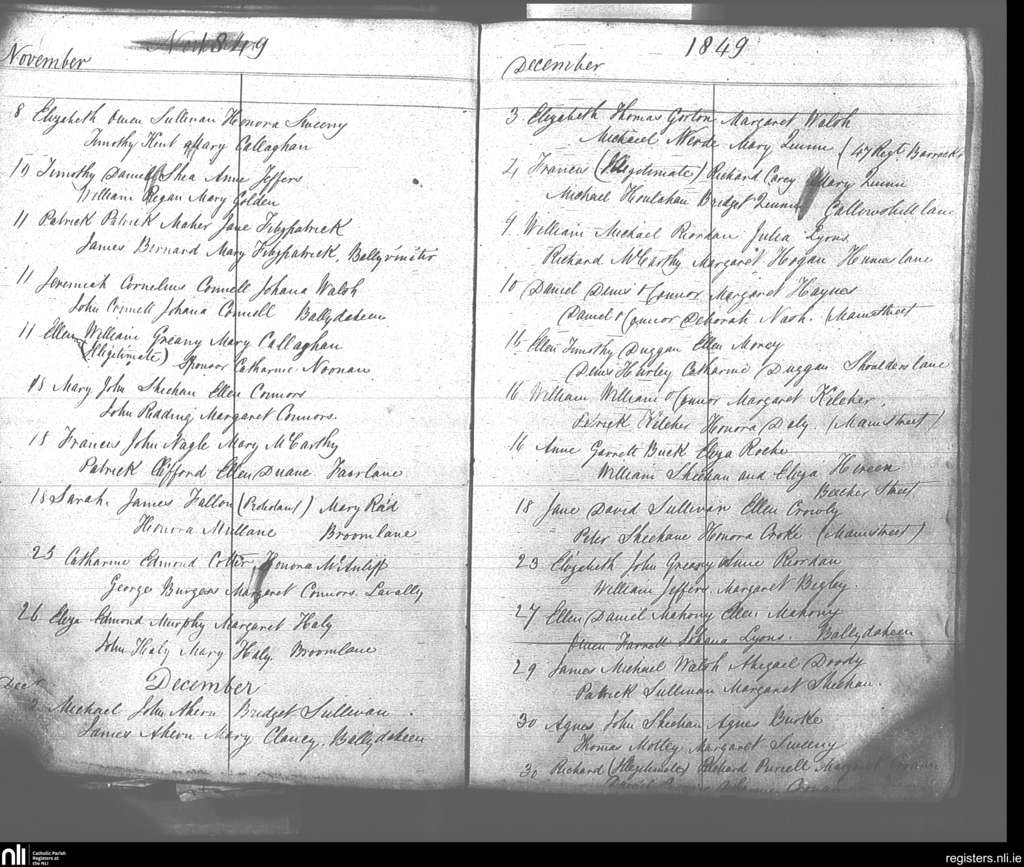 1849
November
8 Elizabeth Owen Sullivan Honora Sweeny
Timothy Kent Mary Callaghan
10 Timothy Daniel O'Shea Anne Jeffers
William Regan Mary Golden
11 Patrick Patrick Maher Jane Fitzpatrick
James Bernard Mary Fitzpatrick,
11 Jeremiah Cornelius Connell Johana Walsh
John Connell Johana Connell Ballydaheen
11 Ellen William Greany Mary Callaghan
(Illegitimate) Sponsor Catharine Noonan
15 Mary John Sheehan Ellen Connors
John Redding Margaret Connors.
15 Francis John Nagle Mary McCarthy
Patrick Clifford Ellen Duane Fairlane
18 Sarah. James Fallon (Protestant) Mary Reid
Honora Mullane Broomlane
25 Catharine Edmond Cotter, Honora McAuliff
George Burgess Margaret Connors. Lavally
26 Eliza Edmond Murphy Margaret Haly
John Haly Mary Haly. Broomlane
December
Decr 2 Michael John Ahern Bridget Sullivan.
James Ahern Mary Clancy, Ballydaheen
1849
December
3 Elizabeth Thomas Gorton Margaret Walsh
Michael Mary Quinn (47 Regt. Barracks
4 Francis (Illegitimate) Richard Carey Mary Quinn
Michael Houlahan Bridget Quinn Gallowshill lane
9 William Michael Riordan Julia Lyons
Richard McCarthy Margaret Hogan lane
10 Daniel Denis O'Connor Margaret Haynes
Daniel O'Connor Deborah Nash. (Mainstreet
15 Ellen Timothy Duggan Ellen Money
Denis Hurley Catharine Duggan Shoulders lane
16 William William O'Connor Margaret Kileher.
Patrick Kileher Honora Daly (Mainstreet)
16 Anne Garrett Buck Eliza Roche
William Sheehan and Eliza
Beecher Street
18 Jane David Sullivan Ellen Crowly
Peter Sheehane Honora Croke (Mainstreet)
23 Elizabeth John Greany Anne Reordan
William Jeffers. Margaret Begley.
27 Ellen Daniel Mahony Ellen Mahony
Owen Farrell Johana Lyons. Ballydaheen
29 James Michael Walsh Abigael Doody
Patrick Sullivan Margaret Sheehan.
30 Agnes John Sheehan Agnes Burke
Thomas Motley Margaret Sweeny
30 Richard (Illegitimate) Richard Purcell Margaret
nli Catholic Parish
Registers at
the NLI
registers.nli.ie